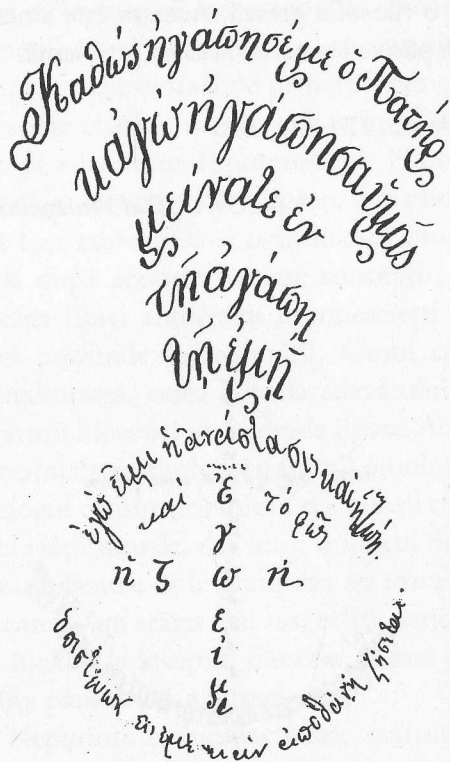 Καθώς ἠγάπησέ με ὁ Πατήρ
κἀγώ ἠγάπησα ὑμᾶς
μείνατε ἐν
τῇ ἀγάπῃ
τῇ ἐμῇ
ἐγώ εἰμι ἡ ἀνάστασις καὶ ἡ ζωή.
και ἐ τό φῶς
γ
ἡ ζ ω ή
ε
ἰ
μι
ὁ πιστεύων εἰς ἐμέ κἄν ἀποθάνῃ ζήσεται.